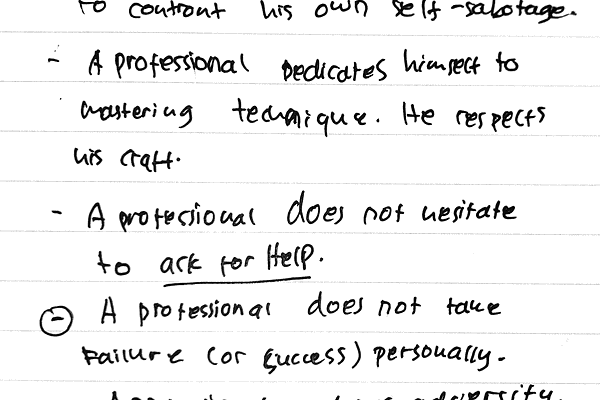 to confront his own self-sabotage.
- A professional dedicates himself to
mastering technique. He respects
his craft.
- A professional does not hesitate
to ask for Help.
- A professional does not take
failure (or success) personally.
adversity.